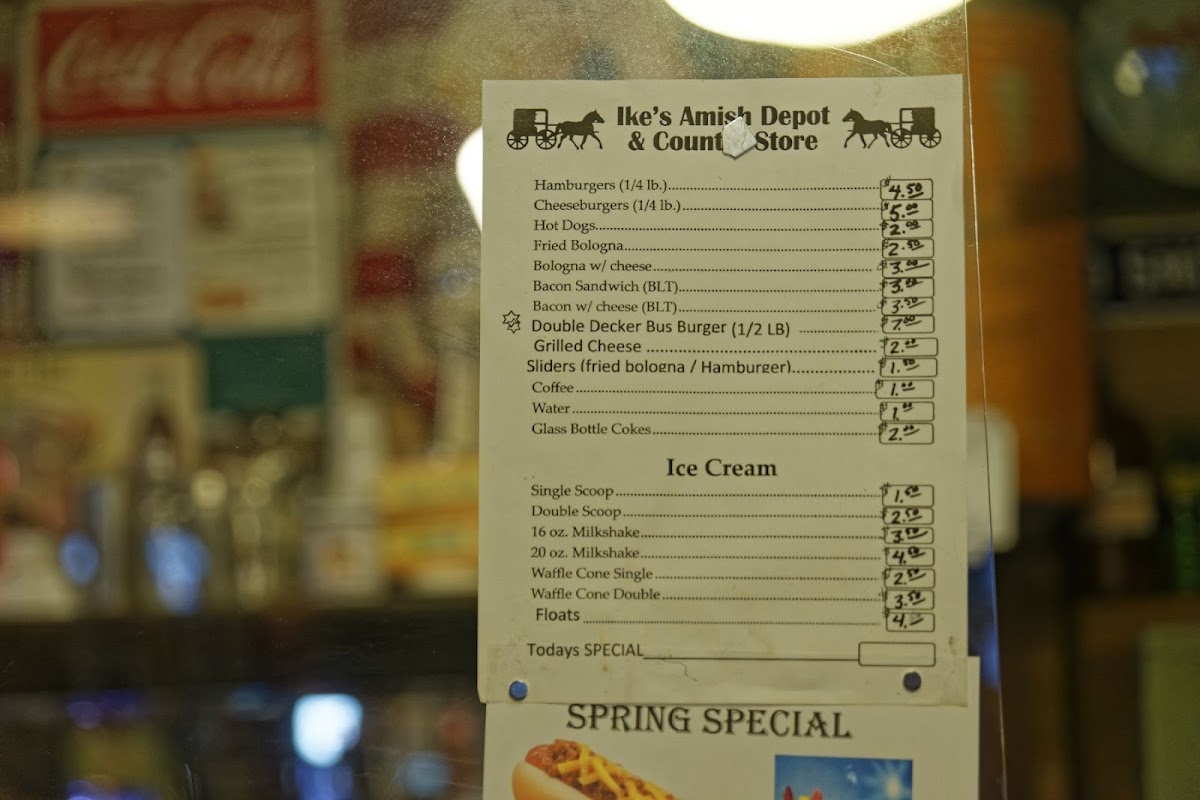 Coca-Cola
Ike's Amish Depot
& Country Store
Hamburgers (1/4 lb.) $4.50
Cheeseburgers (1/4 lb.) $5.00
Hot Dogs $2.00
Fried Bologna $2.50
Bologna w/ cheese $3.00
Bacon Sandwich (BLT) $3.00
Bacon w/ cheese (BLT) $3.50
Double Decker Bus Burger (1/2 LB) $7.00
Grilled Cheese $2.00
Sliders (fried bologna / Hamburger) $1.50
Coffee $1.00
Water $1.00
Glass Bottle Cokes $2.00
Ice Cream
Single Scoop $1.50
Double Scoop $2.50
16 oz. Milkshake $3.50
20 oz. Milkshake $4.00
Waffle Cone Single $2.50
Waffle Cone Double $3.50
Floats $4.
Todays SPECIAL
SPRING SPECIAL